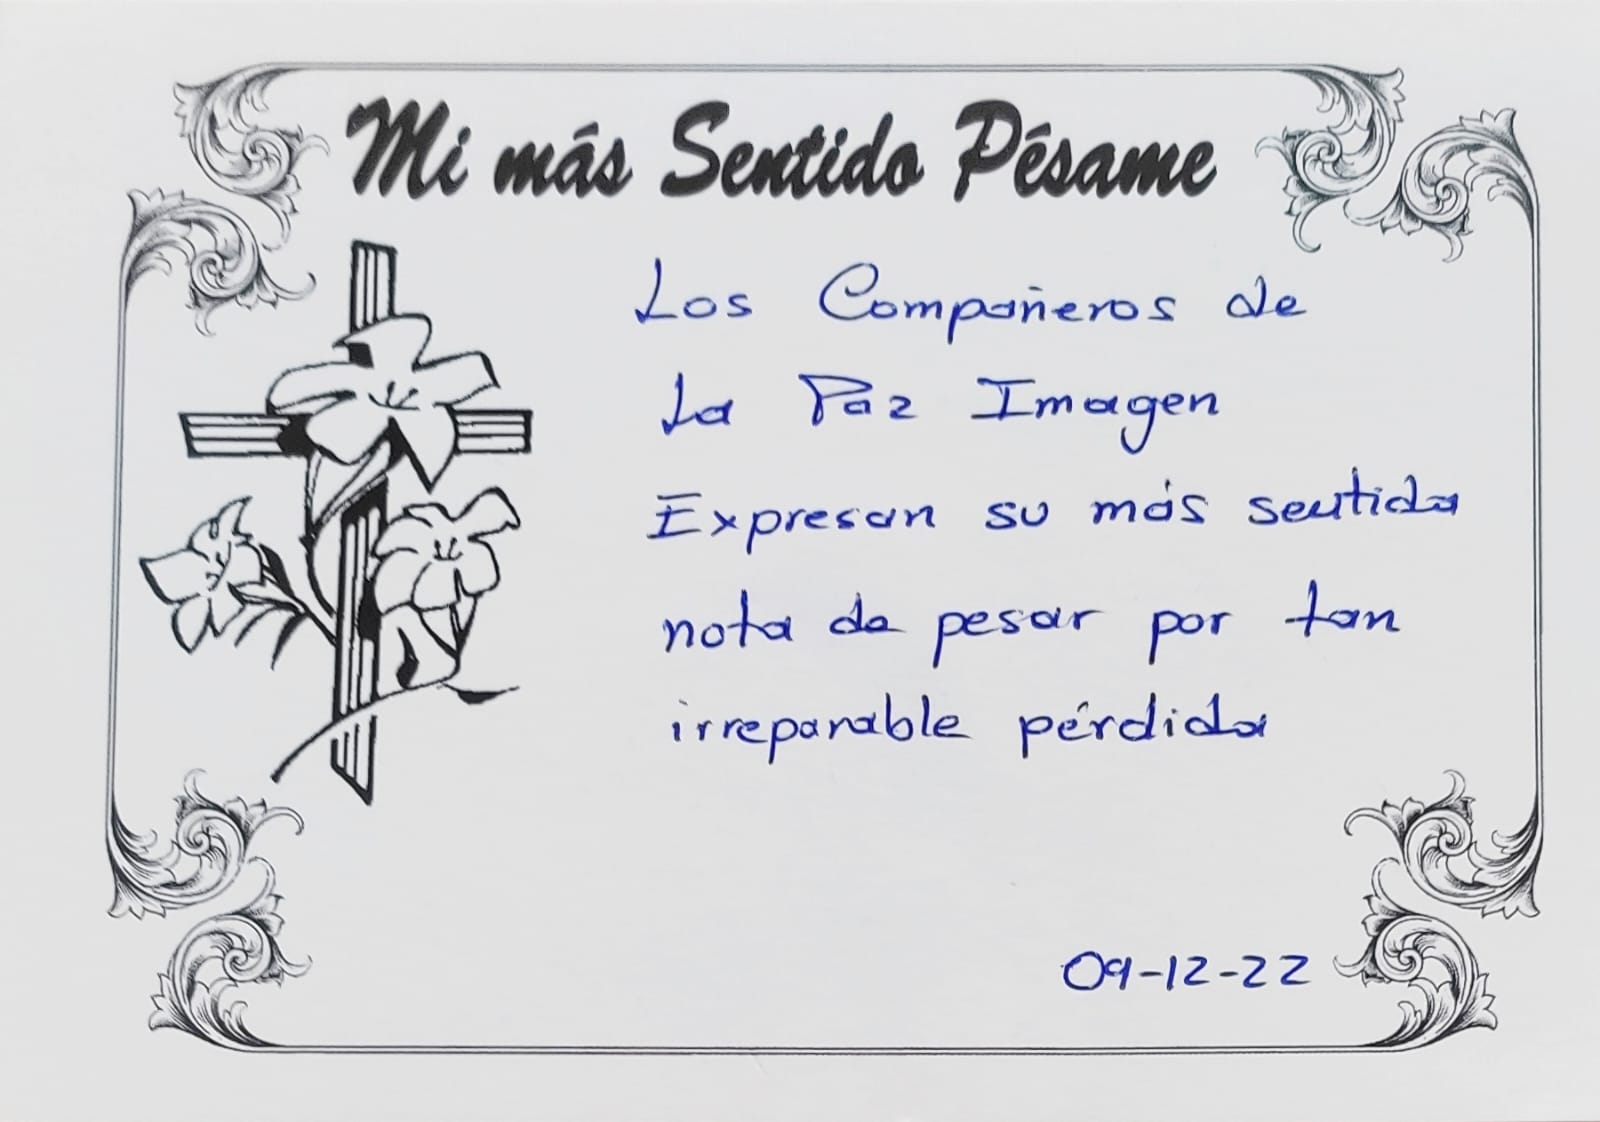 Mi más Sentido Pésame
Los Compañeros de
La Paz Imagen
Expresan su más sentida
nota de pesar por tan
irreparable pérdida
09-12-22